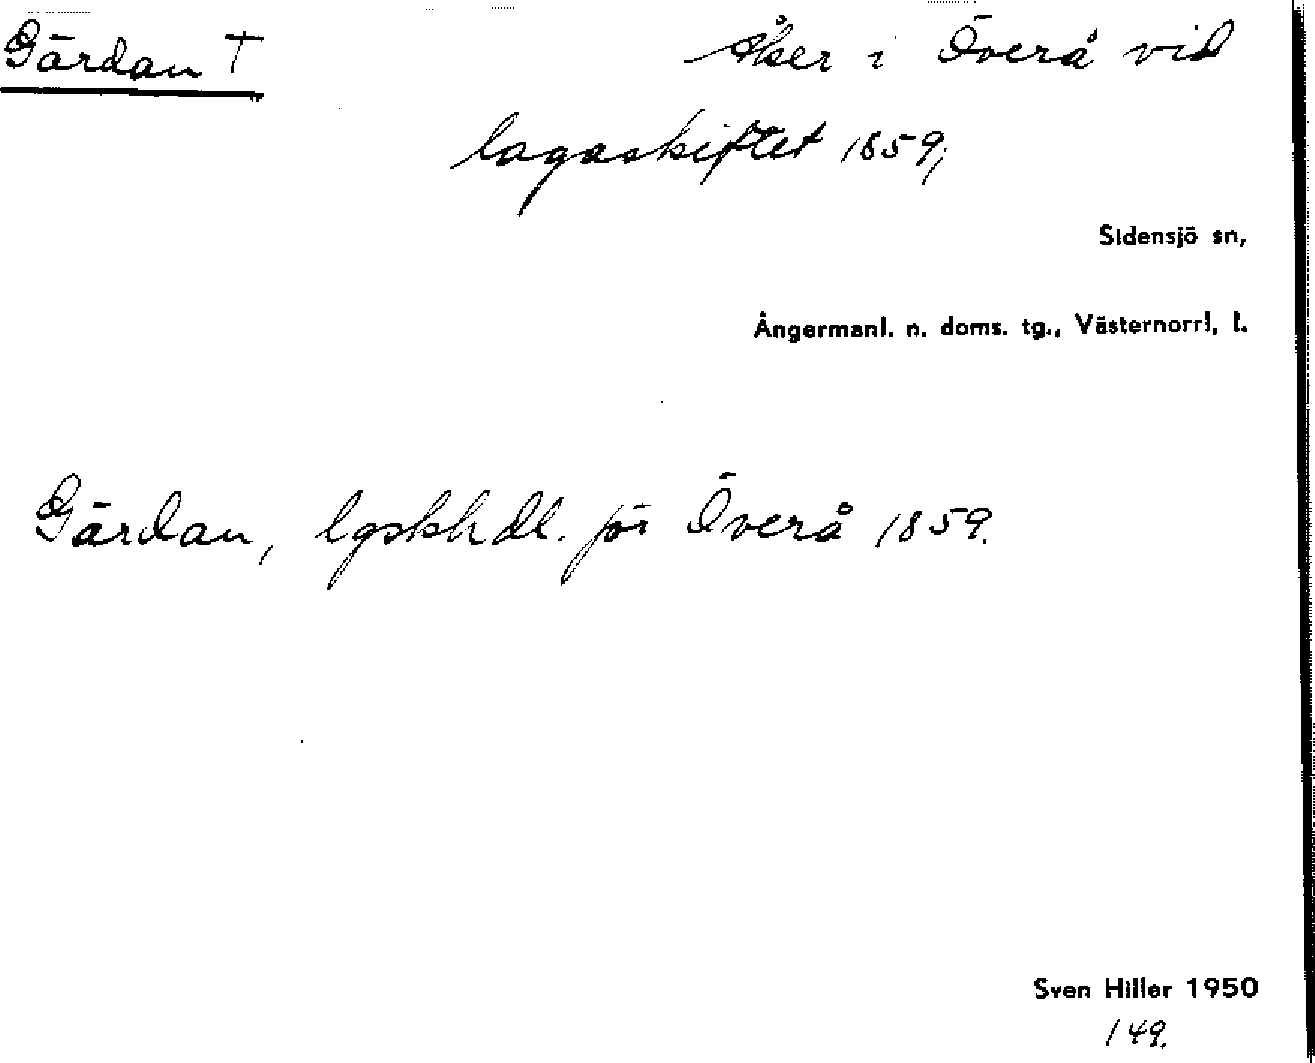 Gärdan † Åker i Överå vid
lagaskiftet 1859,
Sidensjö sn,
Ångermanl. n. doms. tg., Västernorrl. l.
Gärdan, lgskhdl. för Överå 1859.
Sven Hiller 1950
149.